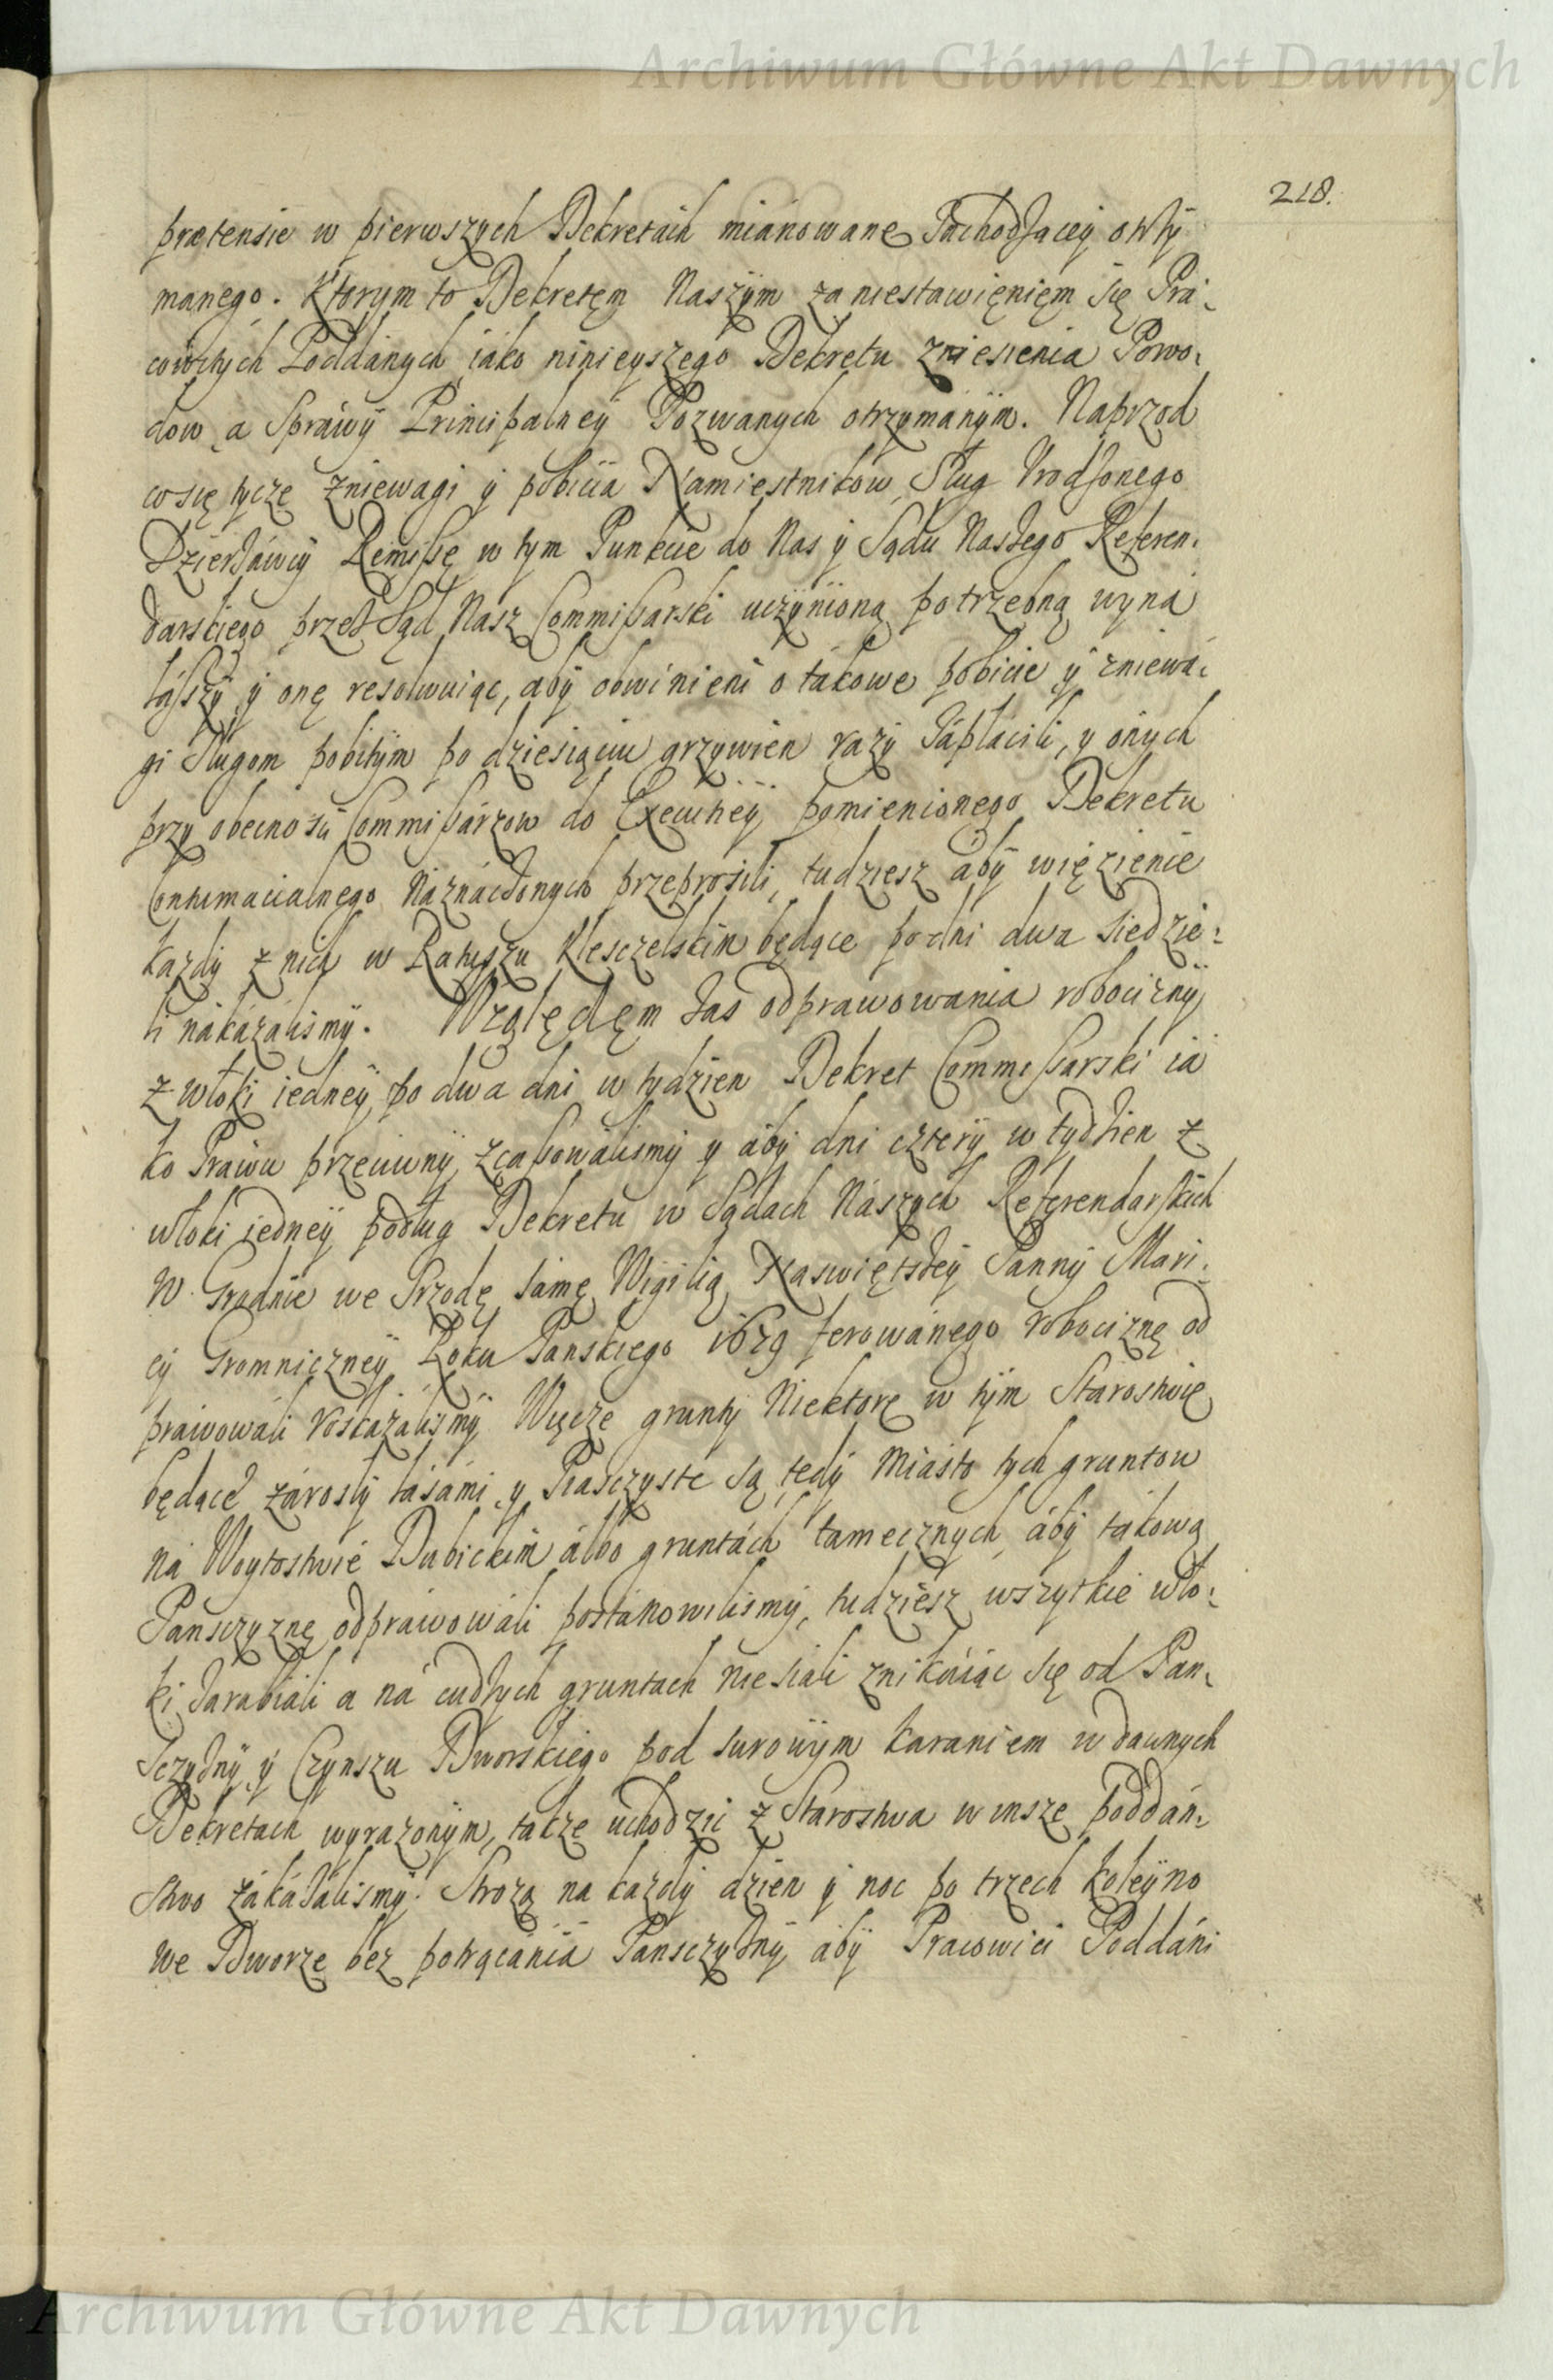 Archiwum Główne Akt Dawnych
218.
prætensie w pierwszych Dekretach mianowane Pachodzącey otrzÿ
manego. Ktorym to Dekretęm Naszÿm za niestawięnięm się Pra¬
cowitÿch Poddanych iako ninieyszego Dekretu zniesienia Powo¬
dow a Sprawÿ Principalneÿ Pozwanych otrzymanÿm. Naprzod
co się tÿcze zniewagi ÿ pobicia Namiestnikow Sług Urodzonego
Dzierżawcÿ Remissę w tym Punkcie do Nas ÿ Sądu Naszego Referen¬
darskiego przez Sąd Nasz Commissarski uczÿnioną potrzebną wyna
laszszÿ ÿ onę resolwuiąc, abÿ obwinieni o takowe pobicie ÿ zniewa¬
gi Sługom pobitÿm po dziesiąciu grzywien razÿ zapłacili, y onych
przy obecnosci Commissarzow do Executieÿ pomienionego Dekretu
Contumacialnego Naznaczonych przeprosili, tudziesz abÿ więzienie
kazdÿ z nich w Ratuszu Klesczelskim będące po dni dwa siedzie¬
li nakazalismÿ. Względęm zas odprawowania robociznÿ
z włoki iedneÿ po dwa dni w tydzien Dekret Commissarski ia
ko Prawu przeciwnÿ zcassowalismÿ y abÿ dni czterÿ w tydzien z
włoki iedneÿ podług Dekretu w Sądach Naszych Referendarskich
W Grodnie we Srzodę samę Wigilią Naswiętszeÿ Pannÿ Mari¬
eÿ Gromniczneÿ Roku Panskiego 1679 ferowanego robociznę od
prawowali roskazalismÿ Więcze gruntÿ Niektore w tÿm Starostwie
będące zaroslÿ lasami y Piasczyste są tedÿ Miasto tych gruntow
na Woytostwie Dubickim albo gruntach tamecznych abÿ takową
Pansczyznę odprawowali postanowilismÿ, tudziesz wszytkie wło¬
ki zarabiali a na cudzych gruntach nie siali znikaiąc się od Pan¬
sczyznÿ ÿ Czynszu Dworskiego pod surowÿm karaniem w dawnych
Dekretach wyrazonÿm, takze uchodzic z Starostwa w insze poddan¬
stwo zakazalismÿ. Strozą na kazdÿ dzien ÿ noc po trzech koleÿno
we Dworze bez potrącania Pansczyznÿ abÿ Pracowici Poddani
Archiwum Główne Akt Dawnych